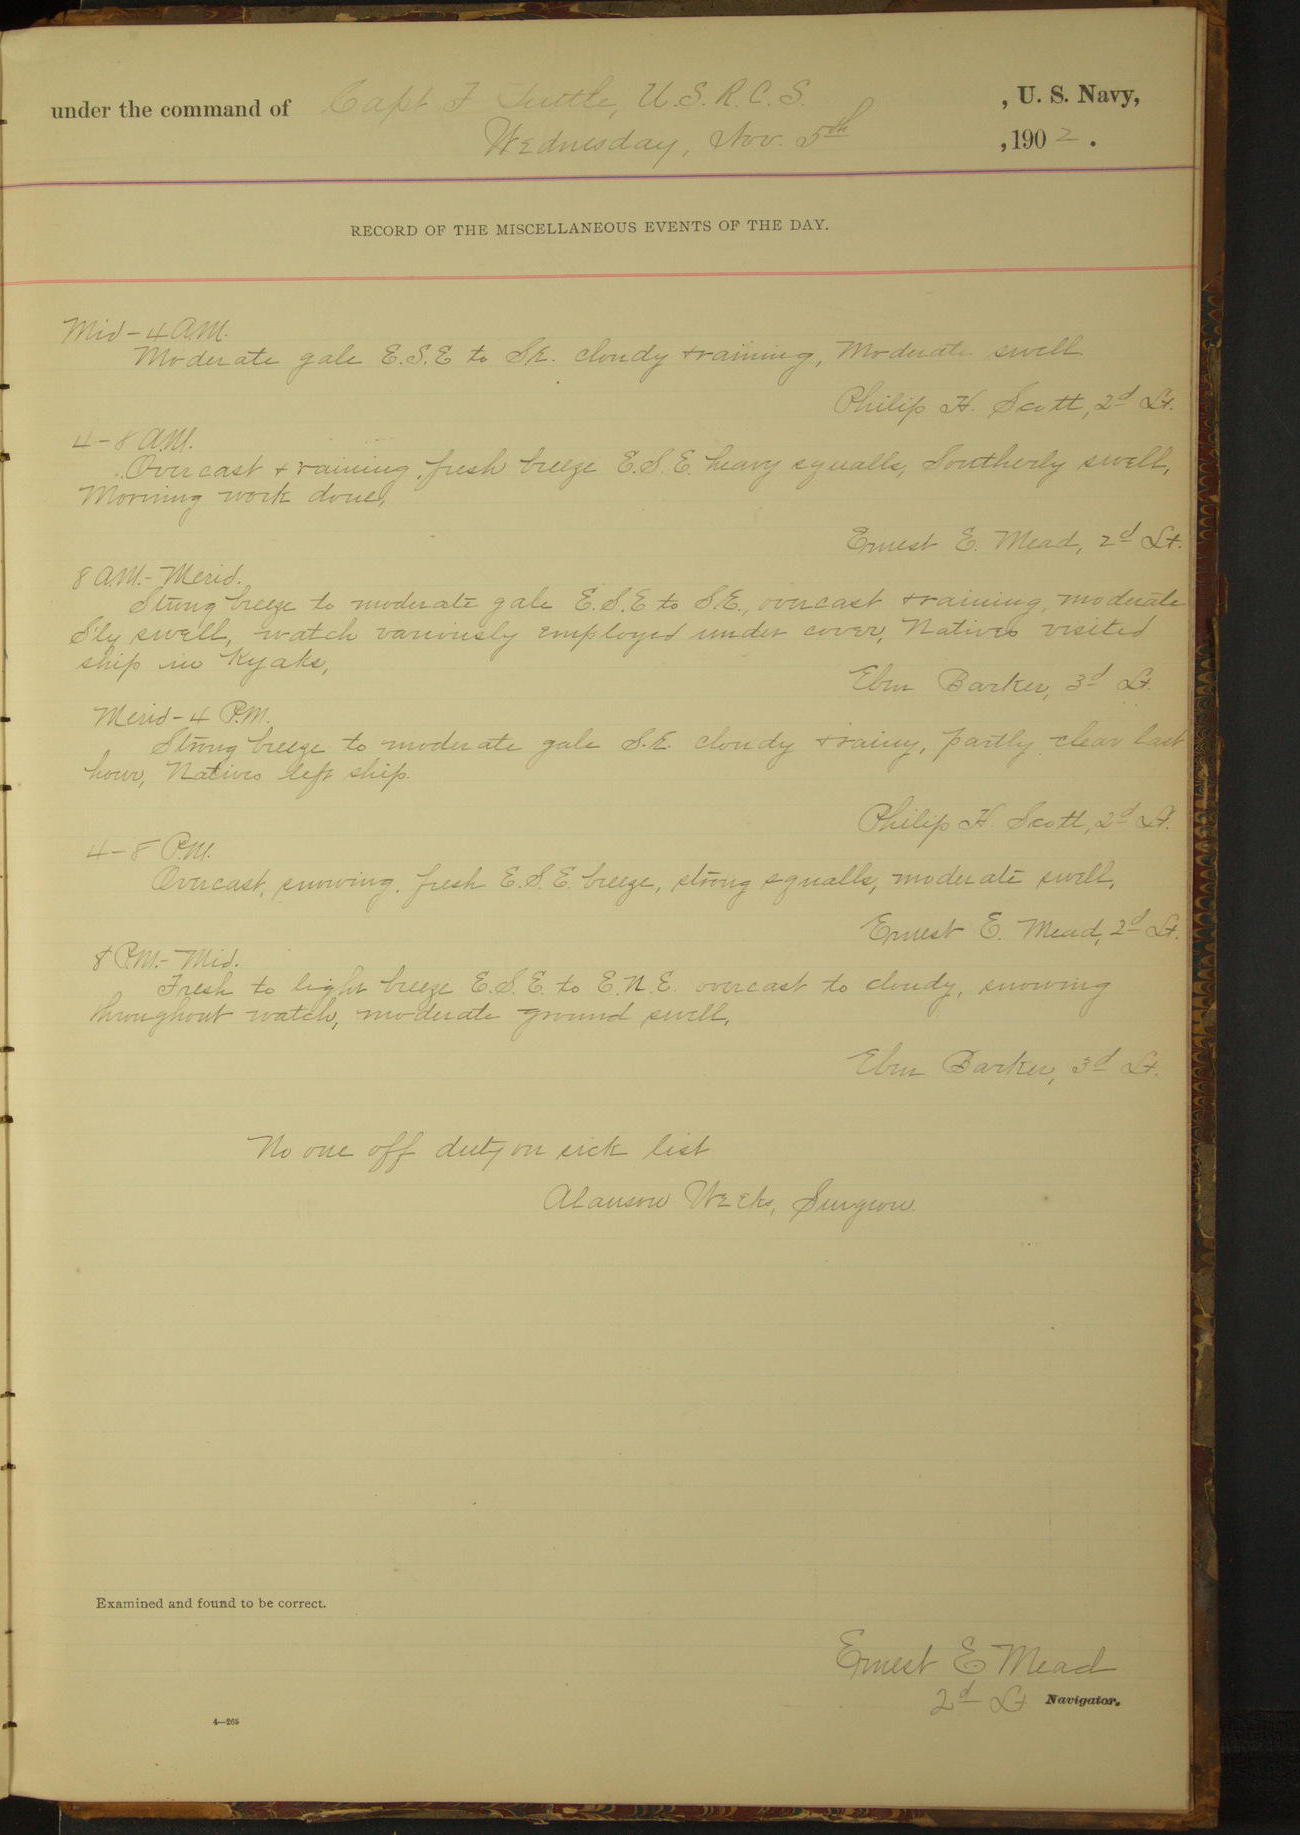 under the command of Capt F Tuttle, U.S.R.C.S. , U. S. Navy,
Wednesday, Nov. 5th , 1902.
RECORD OF THE MISCELLANEOUS EVENTS OF THE DAY.
Mid - 4 A.M.
Moderate gale E.S.E to S.E. cloudy + raining, Moderate swell
Philip H. Scott, 2d Lt.
4 - 8 A.M.
Overcast + raining, fresh breeze E.S.E. heavy squalls, Southerly swell,
Morning work done,
Ernest E. Mead, 2d Lt.
8 A.M. - Merid.
Strong breeze to moderate gale E.S.E to S.E., overcast + raining, moderate
S'ly swell, watch variously employed under cover, Natives visited
ship in Kyaks,
Eben Barker, 3d Lt.
Merid - 4 P.M.
Strong breeze to moderate gale S.E. cloudy + rainy, partly clear last
hour, Natives left ship.
Philip H. Scott, 2d Lt.
4 - 8 P.M.
Overcast, snowing, fresh E.S.E. breeze, strong squalls, moderate swell,
Ernest E. Mead, 2d Lt.
8 P.M. - Mid.
Fresh to light breeze E.S.E. to E.N.E. overcast to cloudy, snowing
throughout watch, moderate ground swell,
Eben Barker, 3d Lt.
No one off duty on sick list
Alanson Weeks, Surgeon.
Examined and found to be correct.
Ernest E Mead
2d Lt Navigator.
4—265